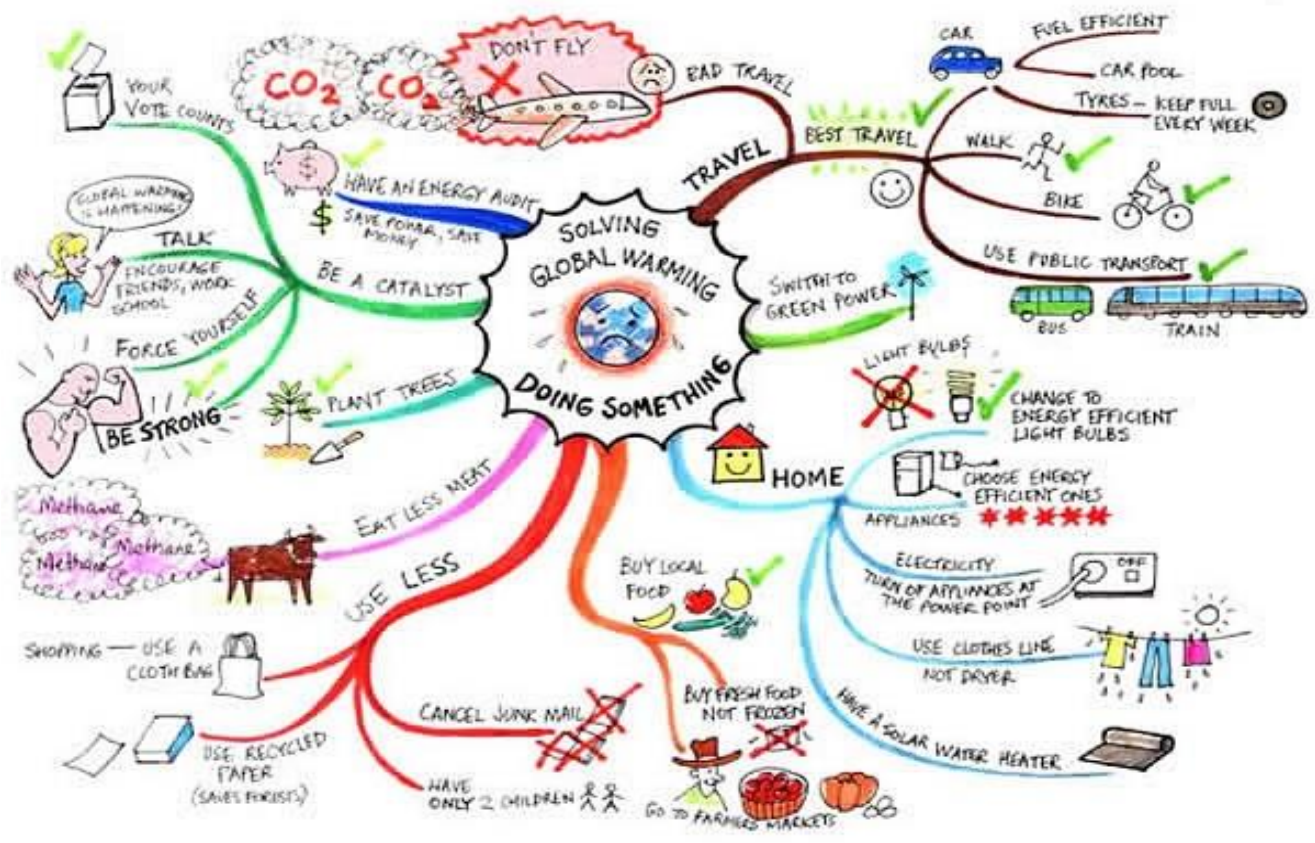 SOLVING
GLOBAL WARMING
DOING SOMETHING
TRAVEL
BAD TRAVEL
DON'T FLY
CO2
CO2
BEST TRAVEL
CAR
FUEL EFFICIENT
CAR POOL
TYRES – KEEP FULL
EVERY WEEK
WALK
BIKE
USE PUBLIC TRANSPORT
BUS
TRAIN
SWITH TO
GREEN POWER
HOME
LIGHT BULBS
CHANGE TO
ENERGY EFFICIENT
LIGHT BULBS
CHOOSE ENERGY
EFFICIENT ONES
APPLIANCES
ELECTRICITY
OFF
TURN OF APPLIANCES AT
THE POWER POINT
USE CLOTHES LINE
NOT DRYER
HAVE A SOLAR WATER HEATER
BUY LOCAL
FOOD
BUY FRESH FOOD
NOT FROZEN
GO TO FARMERS MARKETS
USE LESS
SHOPPING — USE A
CLOTH BAG
USE RECYCLED
PAPER
(SAVES FORISTS)
CANCEL JUNK MAIL
HAVE
ONLY 2 CHILDREN
EAT LESS MEAT
Methane
Methane
Methane
PLANT TREES
BE A CATALYST
YOUR
VOTE COUNTS
GLOBAL WARMING
IS HAPPENING!
TALK
ENCOURAGE
FRIENDS, WORK
SCHOOL
FORCE YOURSELF
BE STRONG
HAVE AN ENERGY AUDIT
$
$
SAVE POWAR, SAVE
MONEY